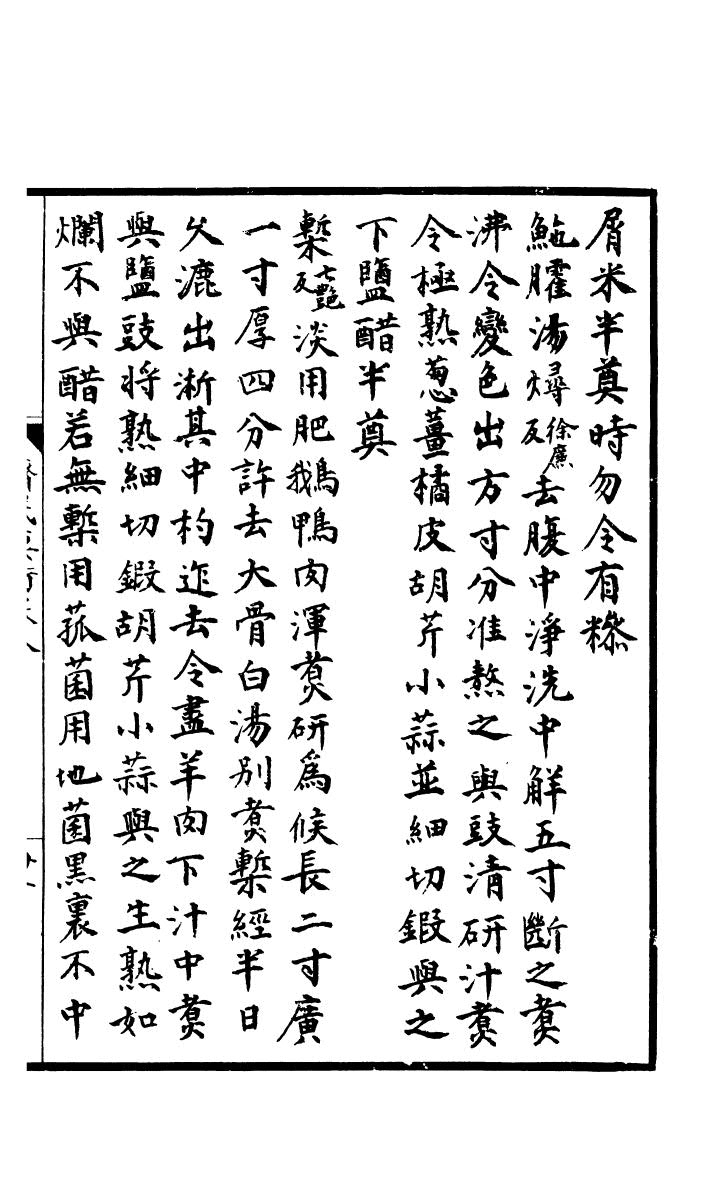 屑米半奠時勿令有糝
鮑臛湯燖徐廉反去腹中淨洗中解五寸斷之煑
沸令變色出方寸分准熬之與豉清研汁煑
令極熟葱薑橘皮胡芹小蒜並細切鍛與之
下鹽醋半奠
槧七艷反淡用肥鵝鴨肉渾煑研爲候長二寸廣
一寸厚四分許去大骨白湯别煑槧經半日
久漉出淅其中杓迮去令盡羊肉下汁中煑
與鹽豉將熟細切鍛胡芹小蒜與之生熟如
爛不與醋若無槧用菰菌用地菌黒裏不中